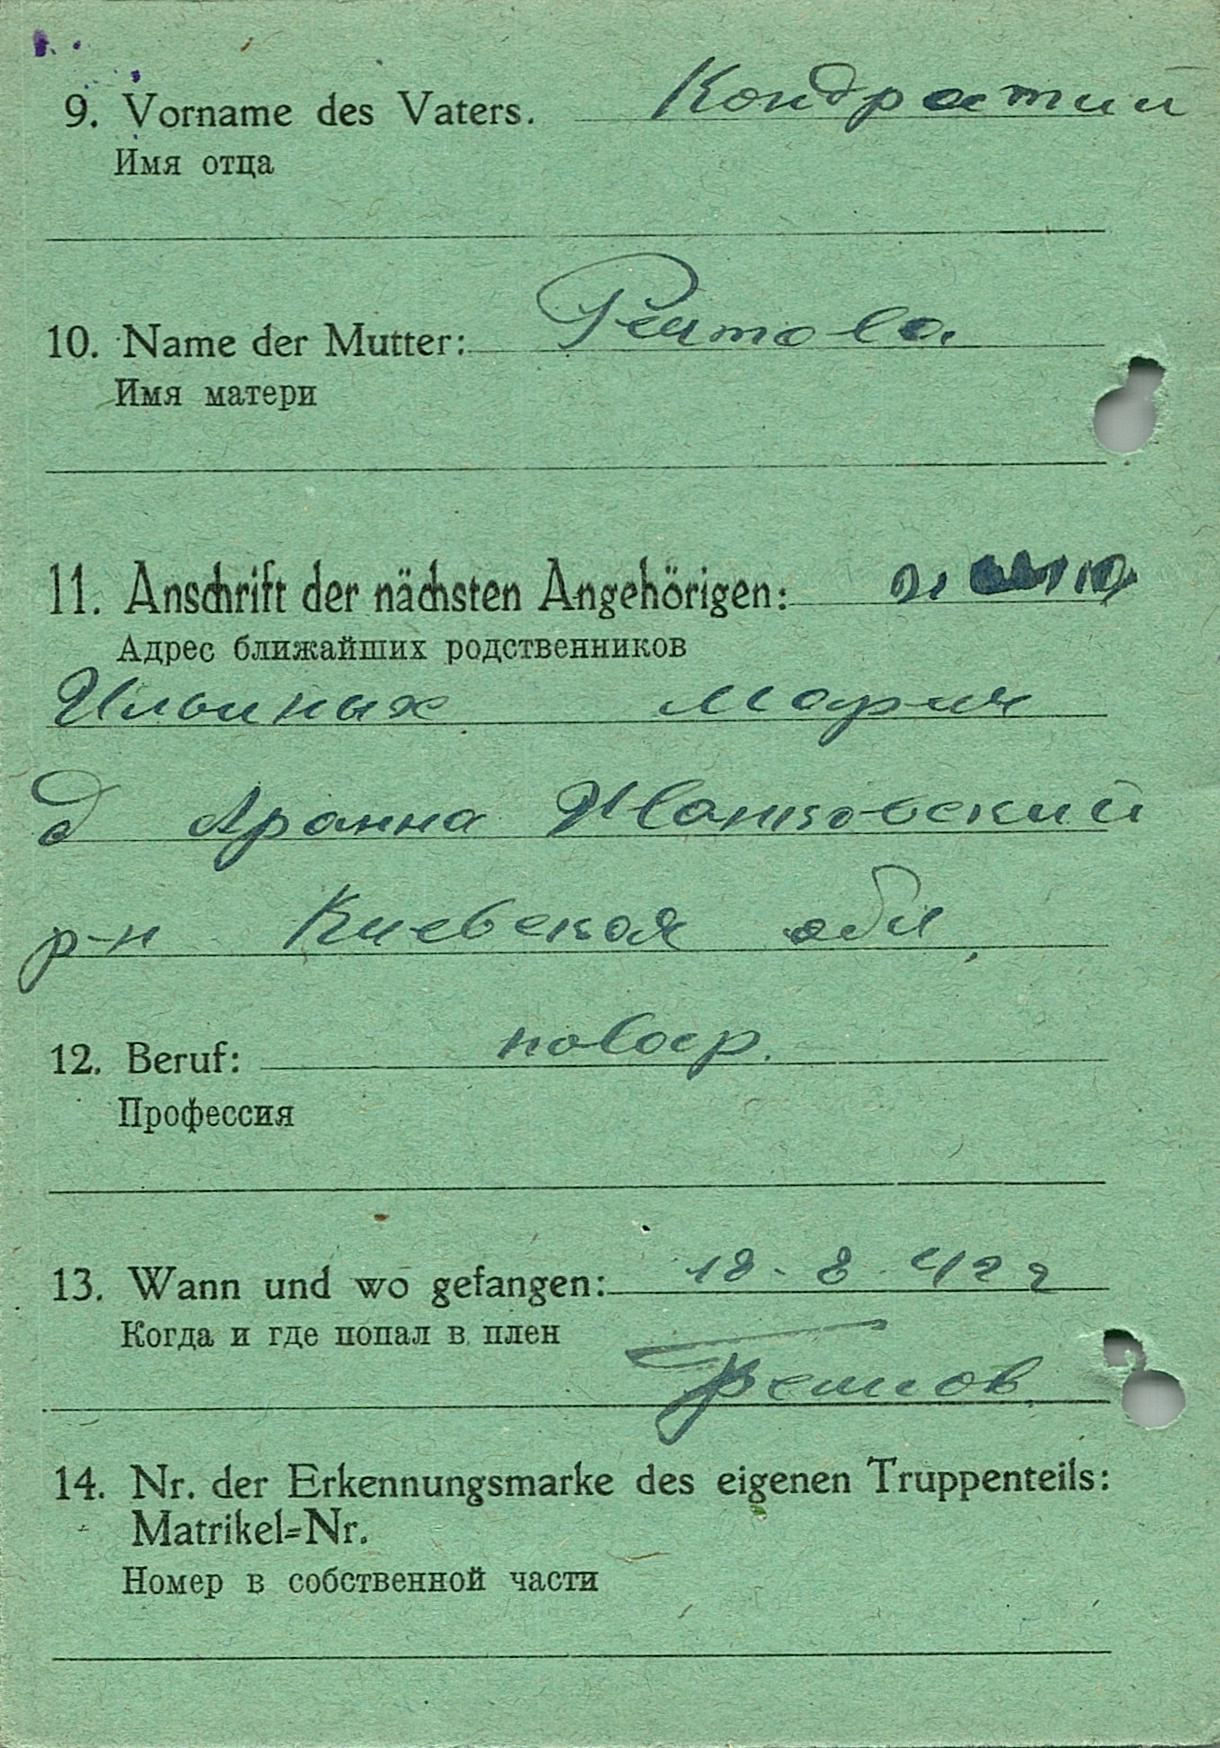 9. Vorname des Vaters. Кондратий
Имя отца
10. Name der Mutter:
Имя матери
11. Anschrift der nächsten Angehörigen:
Адрес ближайших родственников
Ильиных Мария
д
р-н Киевская обл,
12. Beruf: повар.
Профессия
13. Wann und wo gefangen: 18-8-42 г
Когда и где попал в плен
14. Nr. der Erkennungsmarke des eigenen Truppenteils:
Matrikel=Nr.
Номер в собственной части